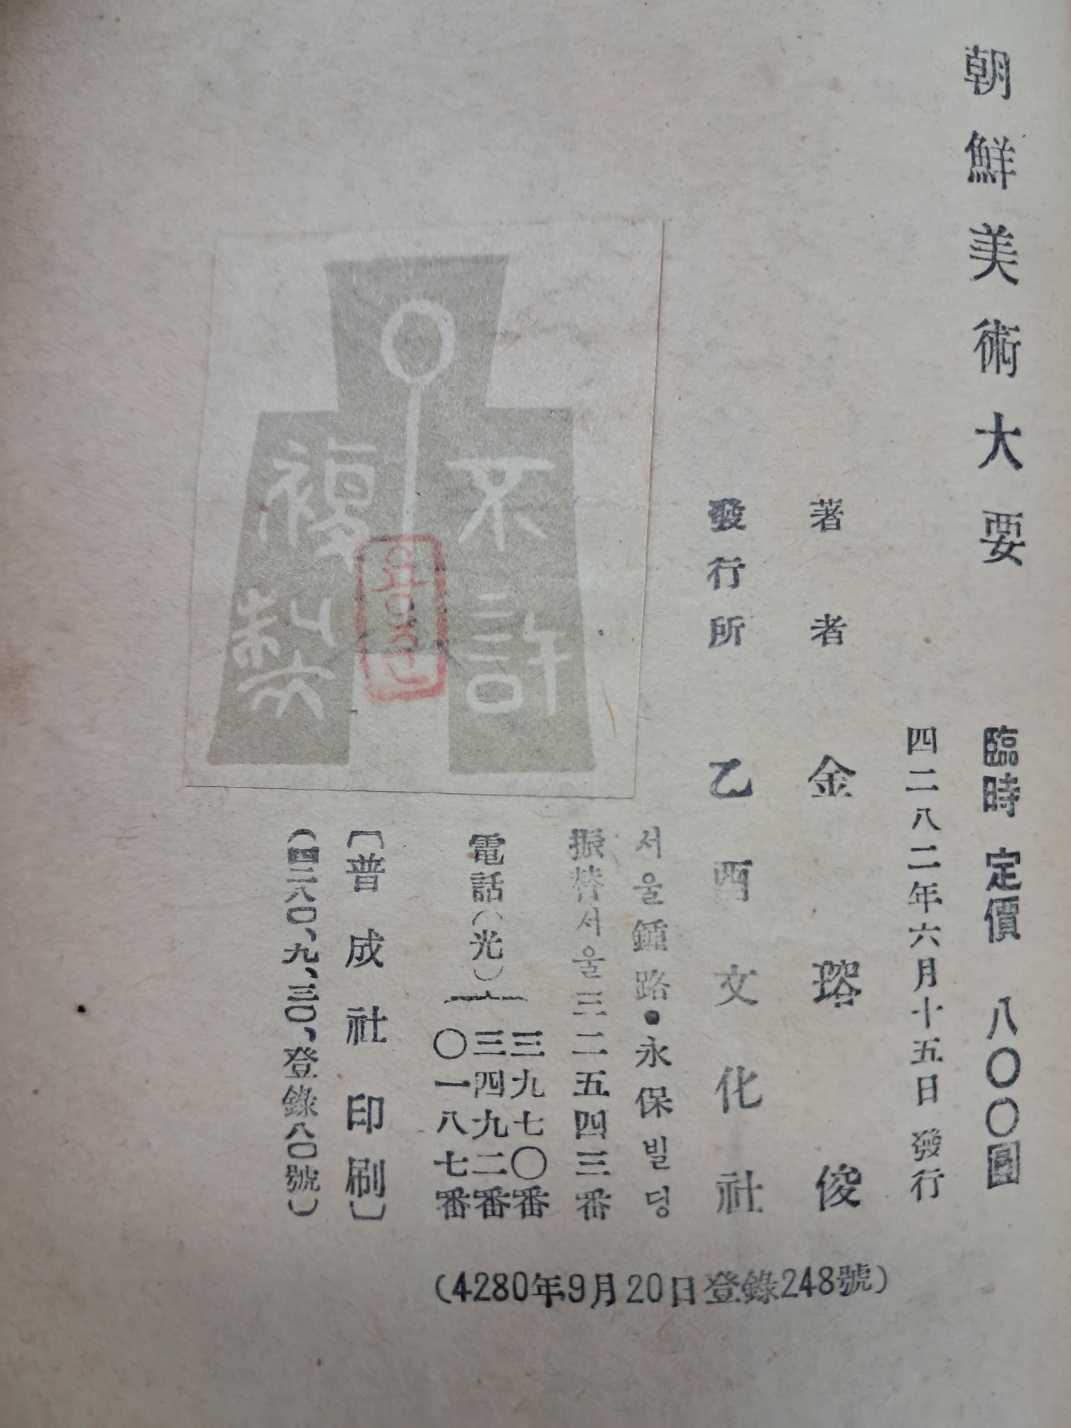 朝鮮美術大要
臨時 定價 八〇〇圓
四二八二年六月十五日 發行
著者 金瑢俊
發行所 乙酉文化社
서울鍾路●永保빌딩
振替서울三二五四三番
電話(光)
三九七〇番
三四九二番
〇一八七番
[普成社印刷]
(四二八〇、九、三〇、登錄八〇號)
(4280年9月20日登錄248號)
不許
複製
용준